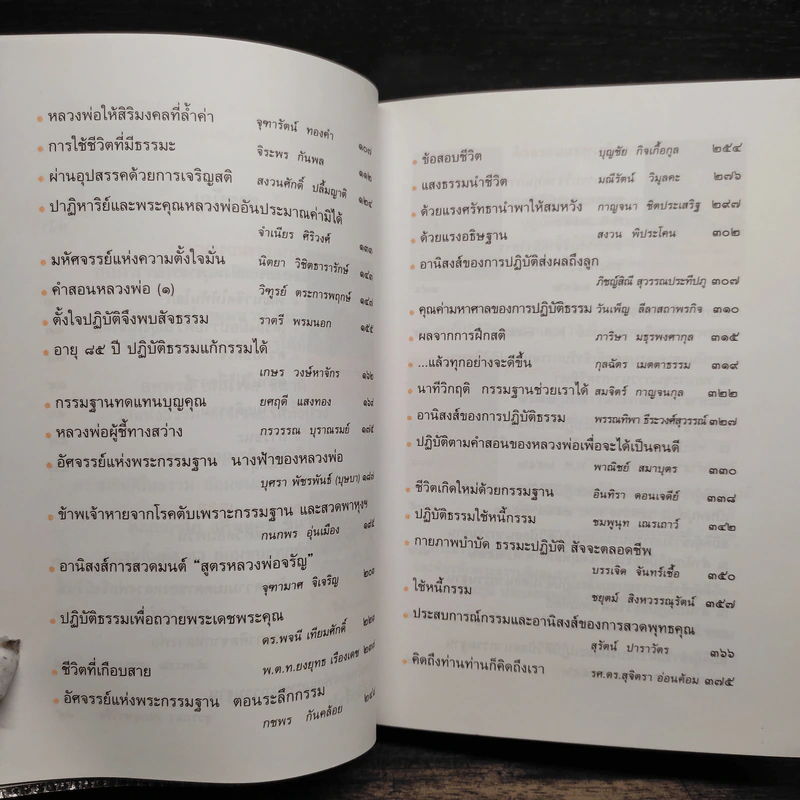 • หลวงพ่อให้สิริมงคลที่ล้ำค่า
จุฑารัตน์ ทองคำ ๑๐๗
• การใช้ชีวิตที่มีธรรมะ
จิระพร กันพล ๑๑๒
• ผ่านอุปสรรคด้วยการเจริญสติ
สงวนศักดิ์ ปลื้มญาติ ๑๒๔
• ปาฏิหาริย์และพระคุณหลวงพ่ออันประมาณค่ามิได้
จำเนียร ศิริวงศ์ ๑๓๑
• มหัศจรรย์แห่งความตั้งใจมั่น นิตยา วิชิตธารารักษ์
• คำสอนหลวงพ่อ (๑) วิฑูรย์ ตระการพฤกษ์
• ตั้งใจปฏิบัติจึงพบสัจธรรม ราตรี พรมนอก ๑๕๕
• อายุ ๘๕ ปี ปฏิบัติธรรมแก้กรรมได้
เกษร วงษ์หาจักร ๑๖๒
• กรรมฐานทดแทนบุญคุณ ยศฤดี แสงทอง
• หลวงพ่อผู้ชี้ทางสว่าง กรวรรณ บุราณรมย์
• อัศจรรย์แห่งพระกรรมฐาน นางฟ้าของหลวงพ่อ
บุศรา พัชรพันธ์ (บุษบา)
• ข้าพเจ้าหายจากโรคตับเพราะกรรมฐาน และสวดพาหุงฯ
กนกพร อุ่นเมือง
• อานิสงส์การสวดมนต์ “สูตรหลวงพ่อจรัญ”
จุฑามาศ จิเจริญ
• ปฏิบัติธรรมเพื่อถวายพระเดชพระคุณ
ดร.พจนี เทียมศักดิ์
• ชีวิตที่เกือบสาย พ.ต.ท.ยงยุทธ เรืองเดช
• อัศจรรย์แห่งพระกรรมฐาน ตอนระลึกกรรม
กชพร กันคล้อย
• ข้อสอบชีวิต บุญชัย กิจเกื้อกูล ๒๕๔
• แสงธรรมนำชีวิต มณีรัตน์ วิมูลคะ ๒๗๖
• ด้วยแรงศรัทธานำพาให้สมหวัง กาญจนา ชิตประเสริฐ ๒๙๗
• ด้วยแรงอธิษฐาน สงวน พิประโคน ๓๐๒
• อานิสงส์ของการปฏิบัติส่งผลถึงลูก
ภิชญ์สิณี สุวรรณประทีปภู ๓๐๗
• คุณค่ามหาศาลของการปฏิบัติธรรม วันเพ็ญ ลีลาสถาพรกิจ ๓๑๐
• ผลจากการฝึกสติ ภาริษา มธุรพงศากุล ๓๑๕
• ...แล้วทุกอย่างจะดีขึ้น กุลฉัตร เมตตาธรรม ๓๑๙
• นาทีวิกฤติ กรรมฐานช่วยเราได้ สมจิตร์ กาญจนกูล ๓๒๒
• อานิสงส์ของการปฏิบัติธรรม พรรณทิพา ธีระวงศ์สุวรรณ์ ๓๒๗
• ปฏิบัติตามคำสอนของหลวงพ่อเพื่อจะได้เป็นคนดี
พาณิชย์ สมาบุตร ๓๓๐
• ชีวิตเกิดใหม่ด้วยกรรมฐาน อินทิรา ดอนเจดีย์ ๓๓๘
• ปฏิบัติธรรมใช้หนี้กรรม ชมพูนุท เณรเถาว์ ๓๔๒
• กายภาพบำบัด ธรรมะปฏิบัติ สัจจะตลอดชีพ
บรรเจิด จันทร์เชื้อ ๓๕๐
• ใช้หนี้กรรม ชยุตม์ สิงหวรรณุรัตน์ ๓๕๗
• ประสบการณ์กรรมและอานิสงส์ของการสวดพุทธคุณ
สุรัตน์ ปาราวัตร ๓๖๖
• คิดถึงท่านท่านก็คิดถึงเรา รศ.ดร.สุจิตรา อ่อนค้อม ๓๗๕